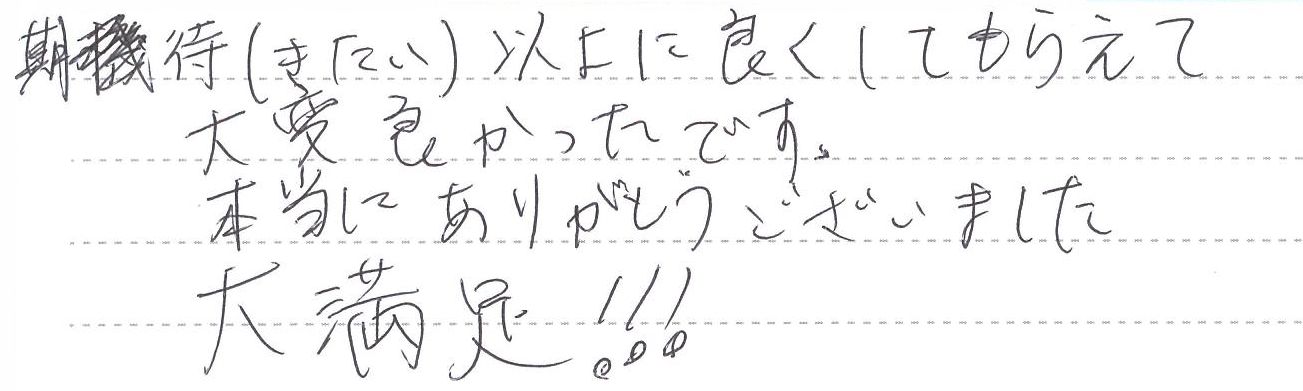 期待(きたい)以上に良くしてもらえて
大変良かったです。
本当にありがとうございました
大満足!!!